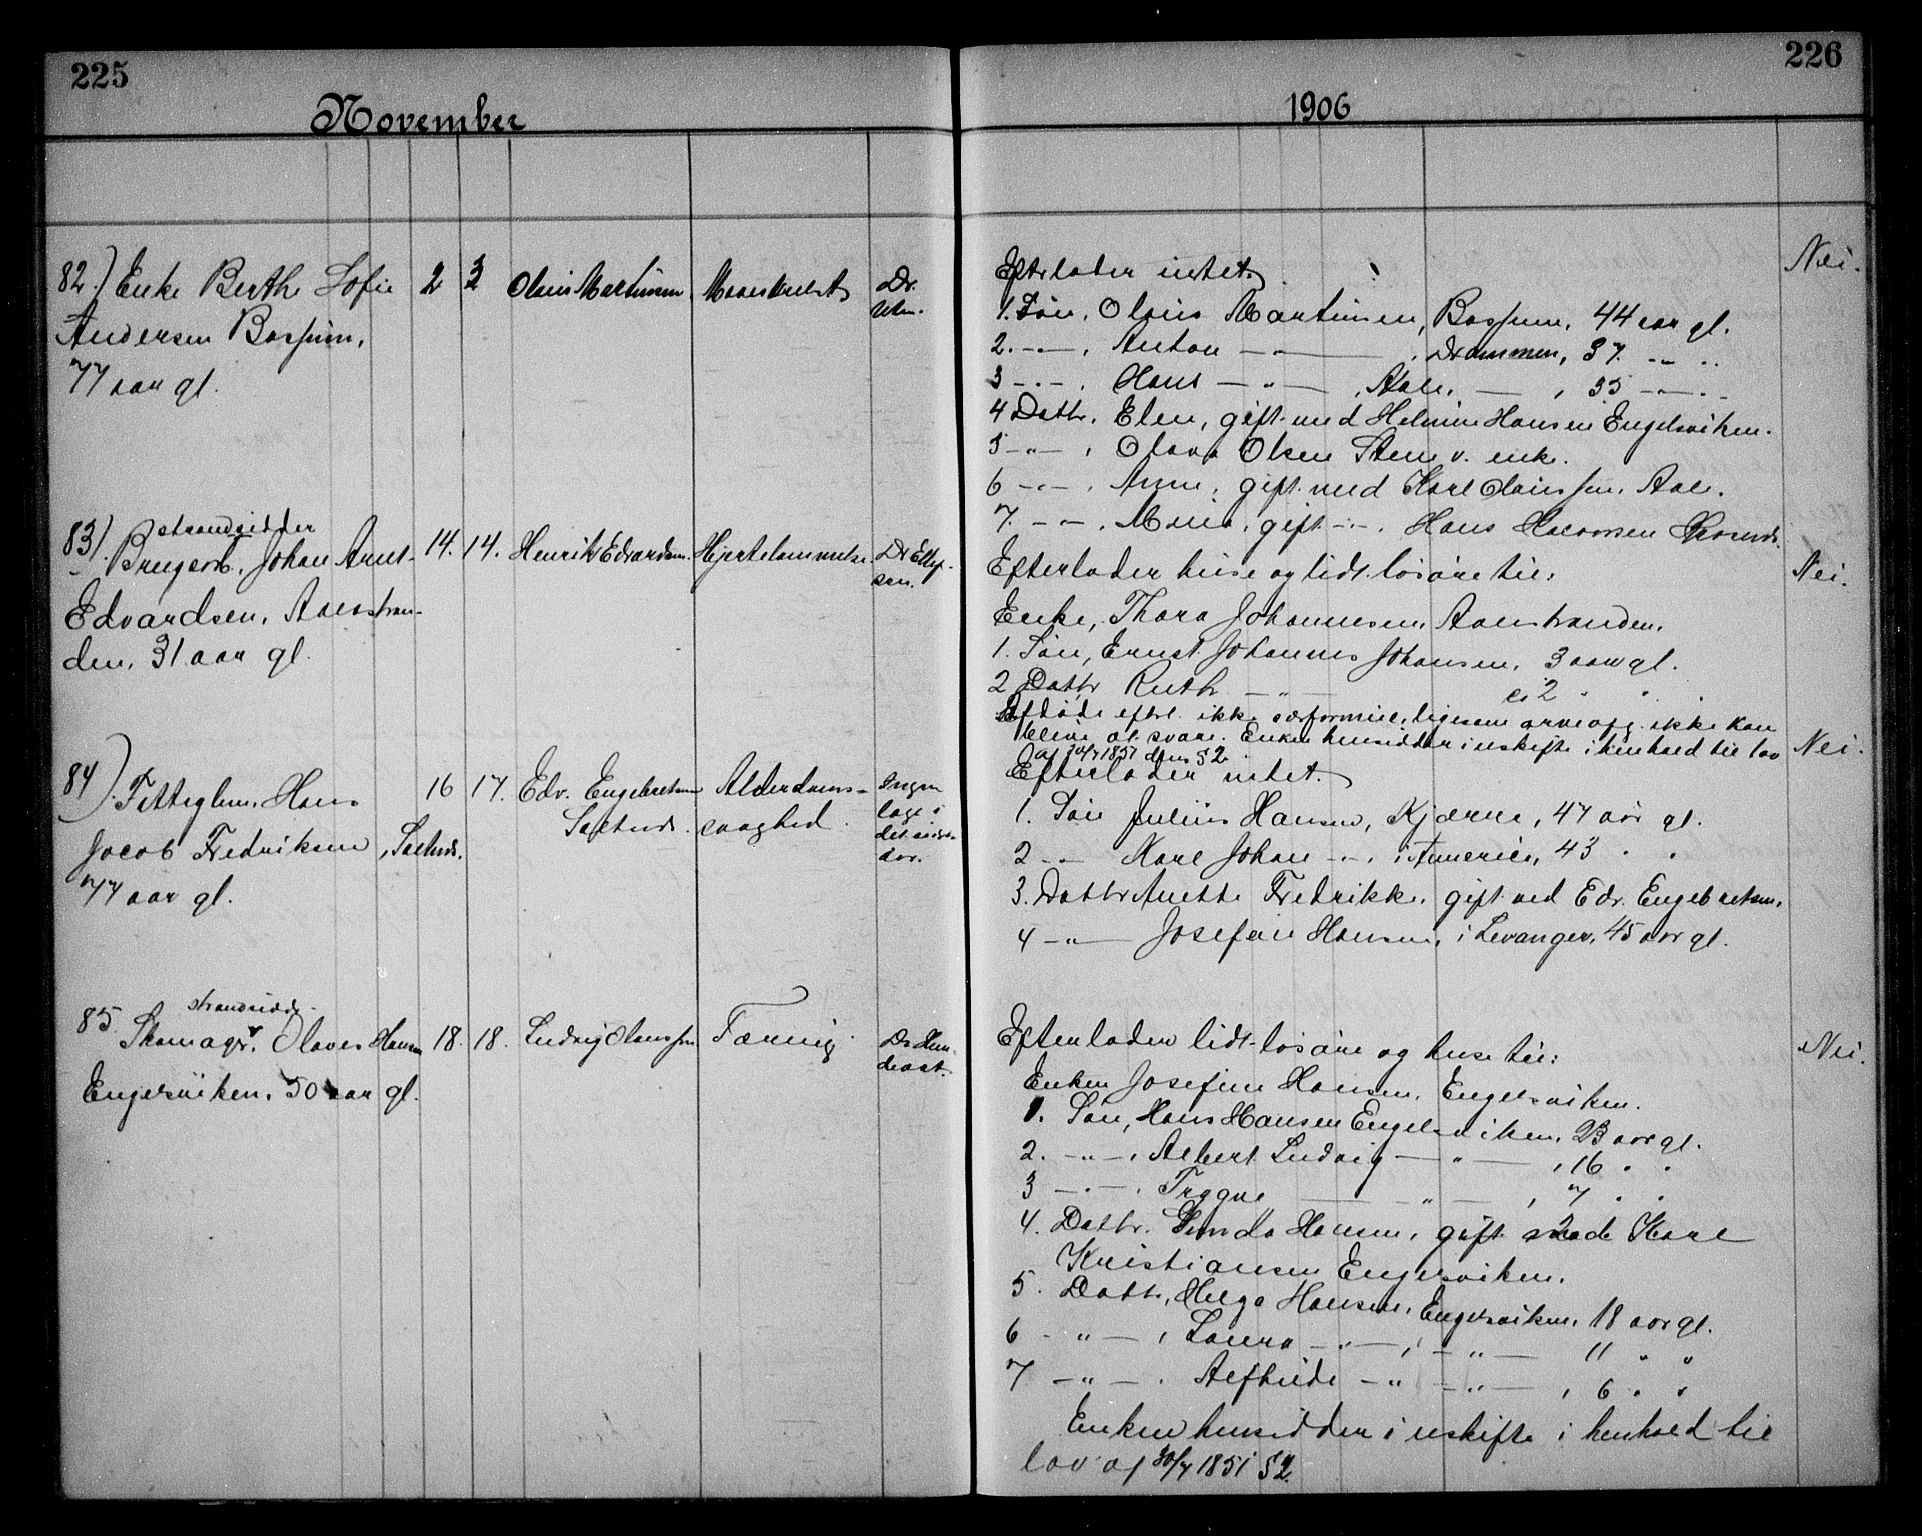 225
226
November
1906
82.) Enke Berthe Sofie
Andersen Bossum,
77 aar gl.
2
3
Olaus Martinsen
Dr.
Efterlader intet.
Nei.
1. Søn, Olaus Martinsen, Bossum, 44 aar gl.
2. -"-, Anton -"- , Drammen, 37. -"- ..
3 -"-, Hans -"- , Aale, — , 35 -"-
4 Dattr. Elen, gift med Helmin Hansen Engelsviken.
5 -"- , Olava Olsen Sten v. enke.
6 -"- , Anne, gift med Karl Olaussen, Aale.
7. -"- , Maria, gift -"- . Hans
83). strandsidder
Brugsarb. Johan Arnt
Edvardsen, Aalestran-
den, 31 aar gl.
14.
14.
Henrik Edvardsen.
Hjertelammelse.
Dr Ellef-
sen.
Efterlader huse og lidt løsøre til:
Nei.
Enke, Thora Johannesen, Aalestranden.
1. Søn, Ernst Johannes Johansen, 3 aar gl.
2 Dattr Ruth -"- ca 2 " "
Afdøde efterl. ikke særformue, ligesom arveafg. ikke kan
blive at svare. Enken hensidder i uskifte i henhold til lov
af 30/7 1851 dens § 2.
84). Hans
Jacob Fredriksen, Saltnes.
77 aar gl.
16
17.
Edv. Engebretsen
Saltnes.
Alderdoms-
svaghed.
Ingen
læge i
det sidste
aar.
Efterlader intet.
Nei.
1. Søn Julius Hansen, Kjærre, 47 aar gl.
2 -"- Karl Johan -"-, i Amerika, 43 " "
3. Dattr Anette Fredrikke, gift med Edv. Engebretsen.
4 -"- Josefine Hansen, i Levanger, 45 aar gl.
85. strandsidd.
Skomagr. Olaves Hansen
Engelsviken, 50 aar gl.
18.
18.
Ludvig Olaussen
Tæring
Dr
Efterlader lidt løsøre og huse til:
Nei.
Enken Josefine Hansen, Engelsviken.
1. Søn, Hans Hansen Engelsviken, 23 aar gl.
2. -"-, Albert Ludvig -"- , 16 " "
3 -"-, Trygve -"- , 7 " "
4. Dattr. Gunda Hansen, gift med Karl
Kristiansen Engelsviken.
5. Dattr., Helga Hansen, Engelsviken, 18 aar gl.
6 -"-, Laura -"-, -"- 11 " "
7 -"-, Alfhilde -"- -"- , 6 " "
Enken hensidder i uskifte i henhold til
lov af 30/7 1851 § 2.